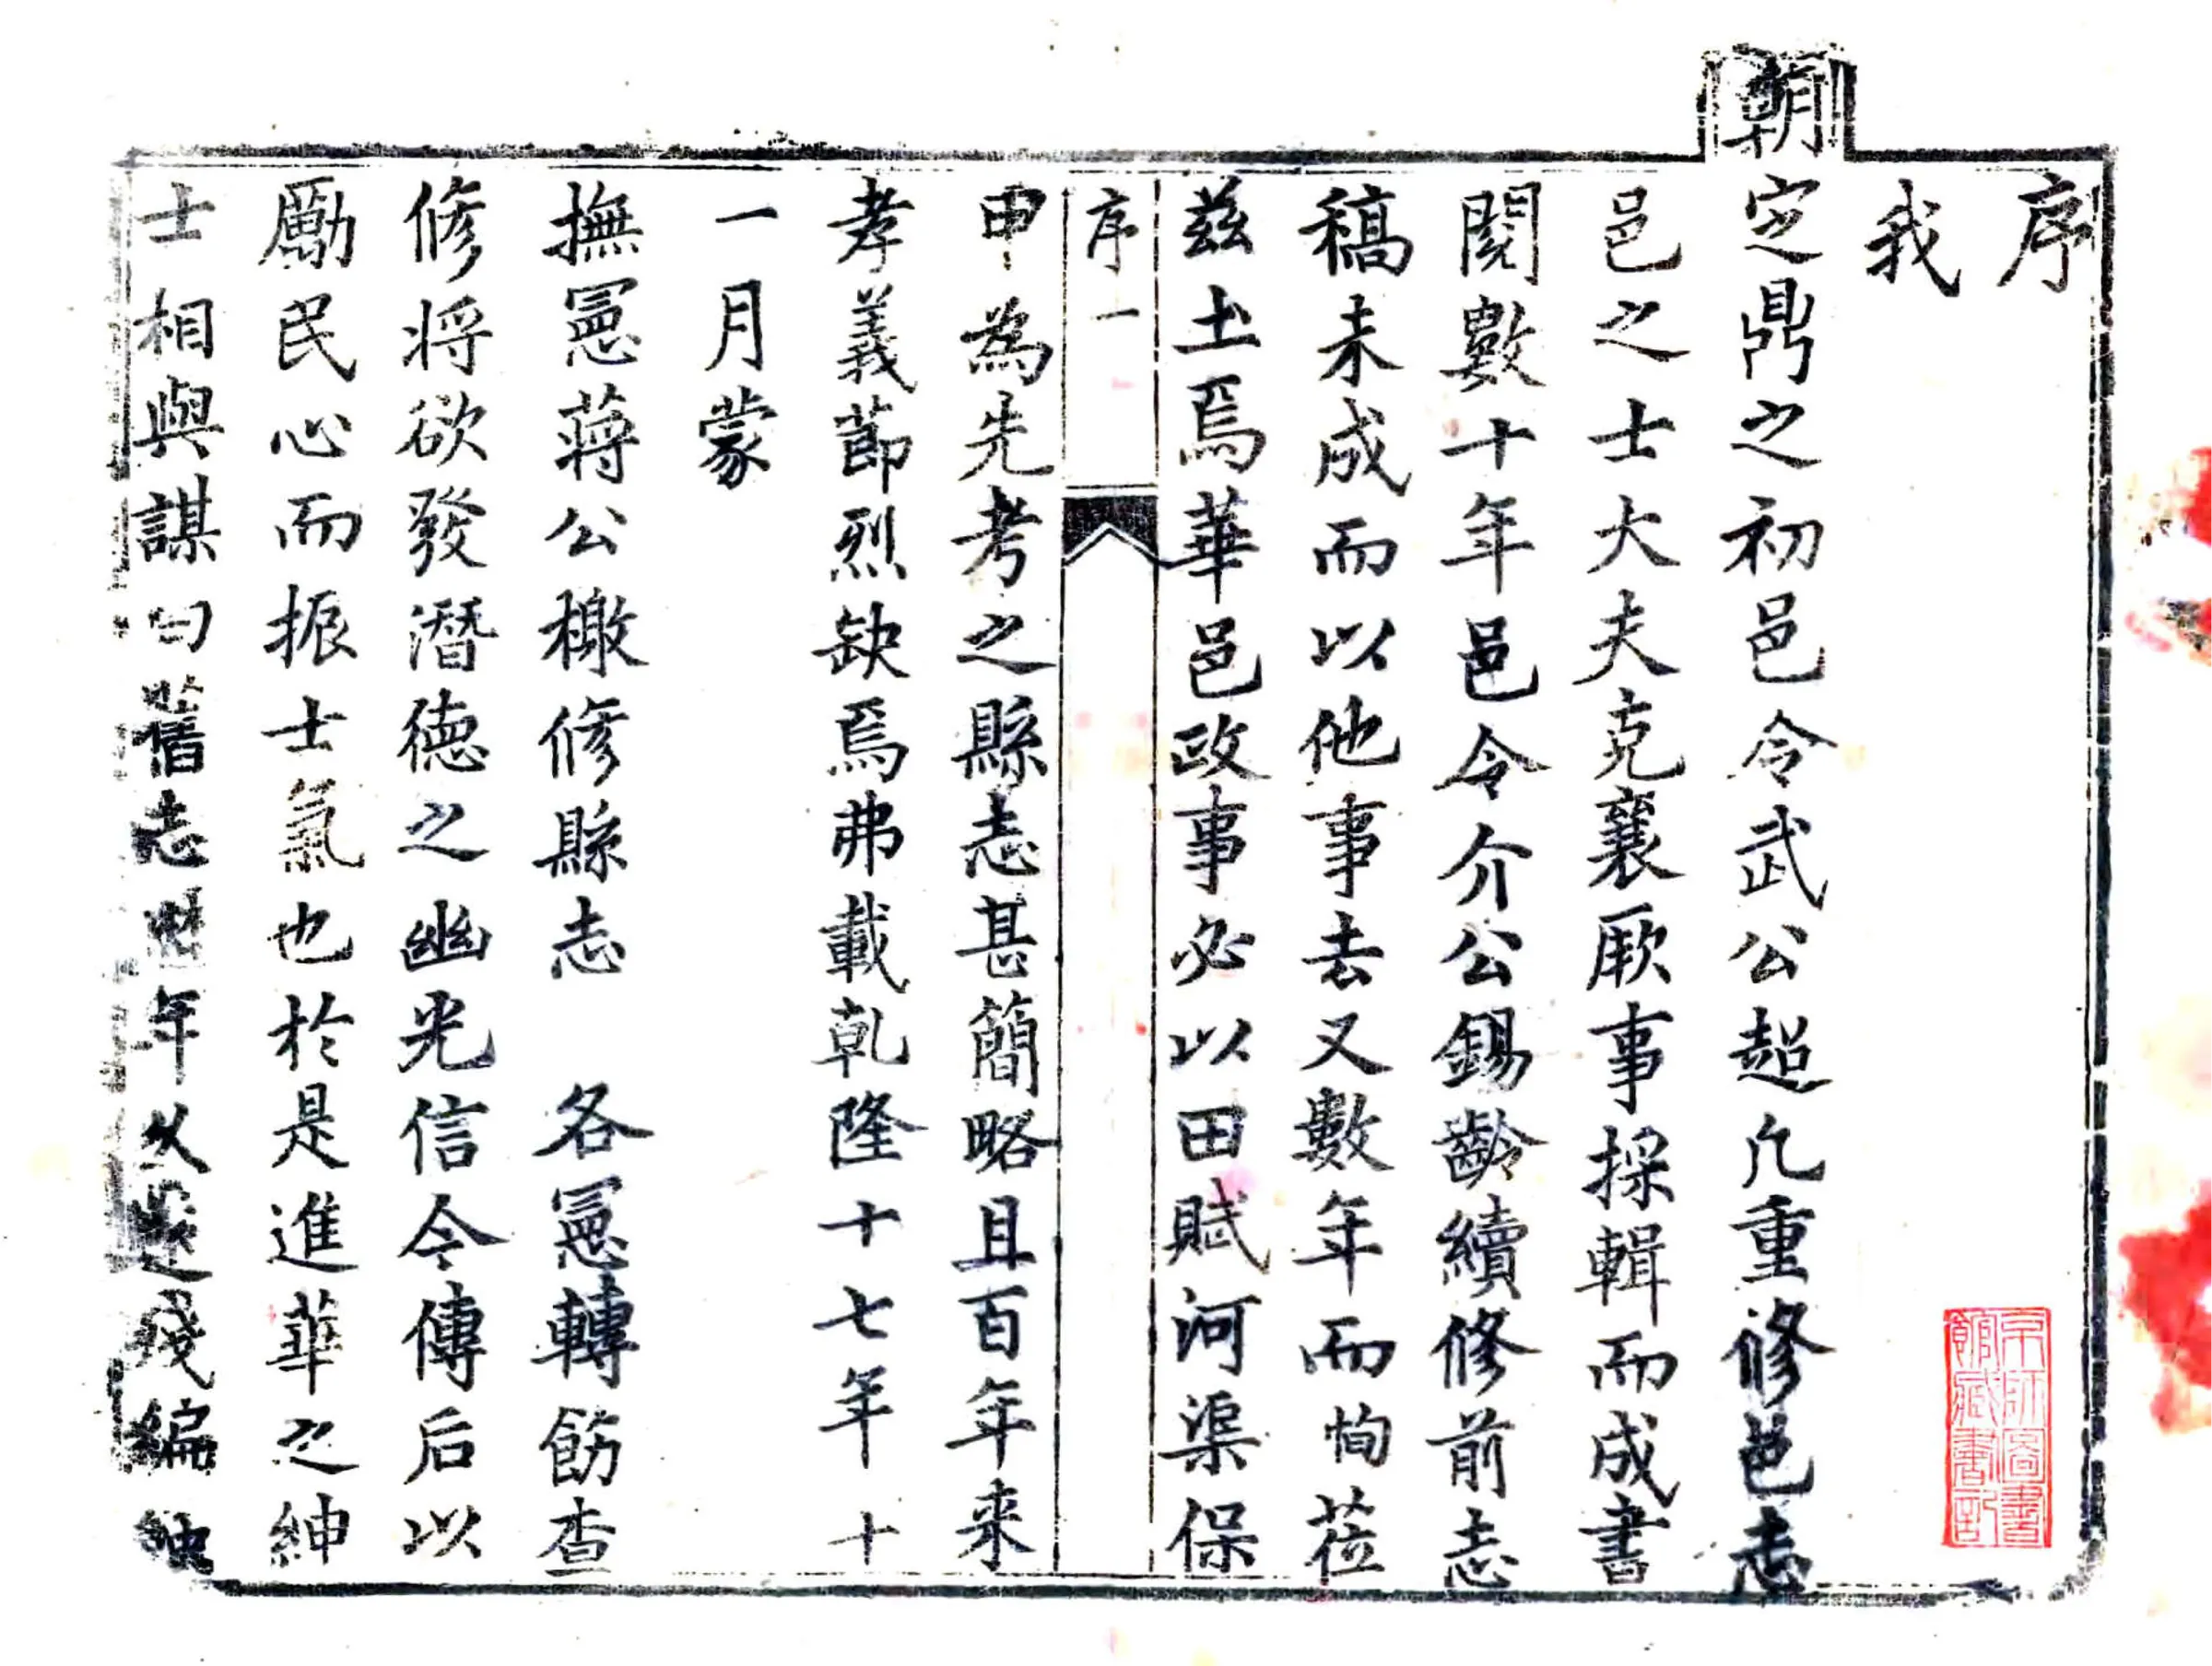 序
我
朝定鼎之初邑令武公超凡重修邑志
邑之士大夫克襄厥事採輯而成書
閱數十年邑令介公錫齡續修前志
稿未成而以他事去又數年而恂莅
茲土焉華邑政事必以田賦河渠保
序 一
申為先考之縣志甚簡略且百年来
孝義節烈缺焉弗載乾隆十七年十
一月蒙
撫憲蔣公檄修縣志 各憲轉飭查
修将欲發潛德之幽光信令傳后以
勵民心而振士氣也於是進華之紳
士相與謀曰舊志年久殘編